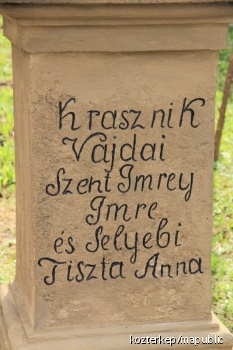 Krasznik
Vajdai
Szent Imrey
Imre
és Selyebi
Tiszta Anna
kozterkep/mapublic